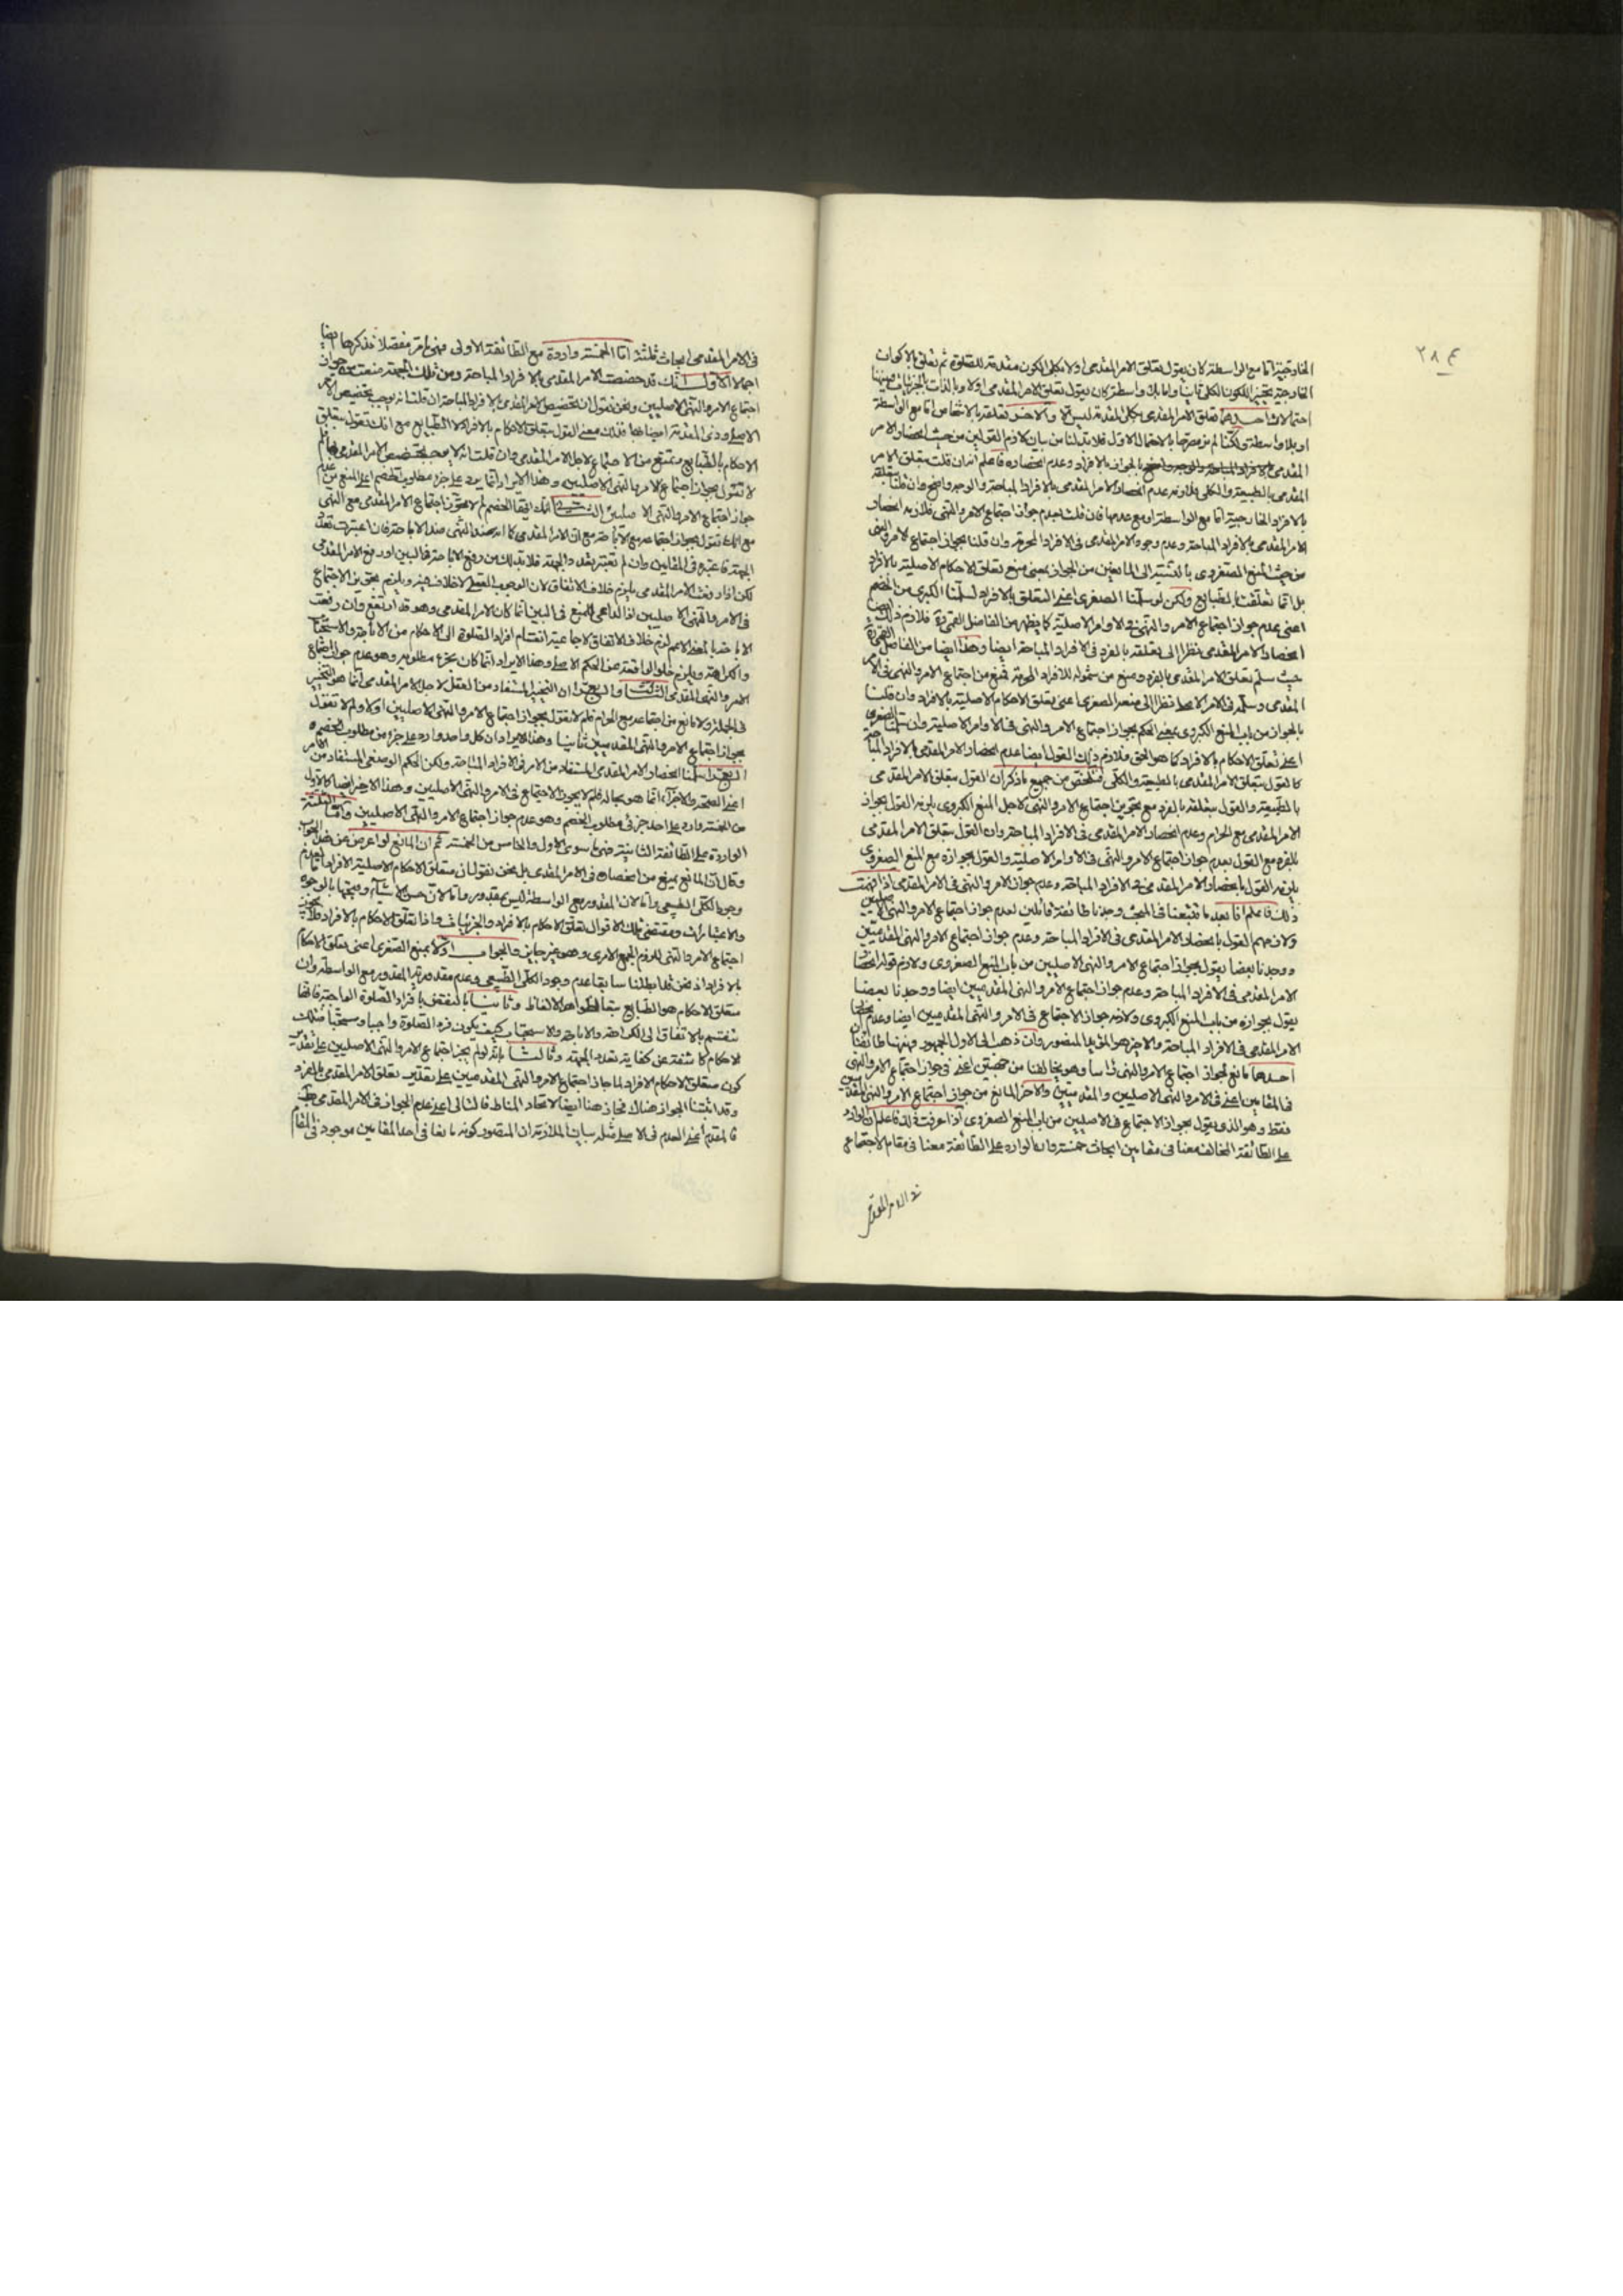 ٢٨٤
الخارجية اما مع الواسطة كان يقول يتعلق الامر المقدمى اولا بكلى الكون مقدمة للصلوة ثم يتعلق بالاكوان
الخارجية الكون الكلى ثانيا واما بلا واسطة كان يقول تعلق الامر المقدمى اولا وبالذات بالجزئيات
احتمالان احدهما تعلق الامر المقدمى بكلى المقدمة ليس الا والاخر تعلقه بالاشخاص اما مع الواسطة
او بلا واسطة ولكنا لم نتعرضها بالاحتمال الاول فلا بد لنا من بيان لازم القولين من حيث انحصار الامر
المقدمى بالافراد المباحة بالجواز بالافراد وعدم انحصاره فاعلم انه ان قلت بتعلق الامر
المقدمى بالطبيعة والكلى فلازمه عدم انحصار الامر المقدمى بالافراد المباحة والوجه واضح وان قلنا بتعلقه
بالافراد الخارجية اما مع الواسطة او مع عدمها فان قلت بعدم جواز اجتماع الامر والنهى فلازمه انحصار
الامر المقدمى بالافراد المباحة وعدم وجود الامر المقدمى فى الافراد المحرمة وان قلنا بجواز اجتماع الامر والنهى
من حيث المنع الصغروى بالنسبة الى المانعين من الجواز بمعنى منع تعلق الاحكام الاصلية بالافراد
بل انما تعلقت بالطبايع ولكن لو سلمنا الصغرى اعنى التعلق بالافراد لسلمنا الكبرى من الخصم
اعنى عدم جواز اجتماع الامر والنهى فى الاوامر الاصلية كما يظهر من الفاضل القمى ره فلازم ذلك ايضا
انحصار الامر المقدمى نظرا الى تعلقه بالفرد فى الافراد المباحة ايضا وهذا ايضا من الفاضل القمى ره
حيث سلم تعلق الامر المقدمى بالفرد ومنع من شموله للافراد المحرمة فمنع من اجتماع الامر والنهى فى الامر
المقدمى وسلمه فى الامر الاصلى نظرا الى منعه الصغرى اعنى تعلق الاحكام الاصلية بالافراد وان قلنا
بالجواز من باب المنع الكبروى بمعنى الحكم بجواز اجتماع الامر والنهى فى الاوامر الاصلية وان سلمنا الصغرى
اعنى تعلق الاحكام بالافراد كما هو الحق فلازم ذلك القول ايضا عدم انحصار الامر المقدمى بالافراد المباحة
كالقول بتعلق الامر المقدمى بالطبيعة والكلى فتلخص من جميع ما ذكر ان القول بتعلق الامر المقدمى
بالطبيعة والقول بتعلقه بالفرد مع تجويز اجتماع الامر والنهى لاجل المنع الكبروى يلزمه القول بجواز
الامر المقدمى مع الحرام وعدم انحصار الامر المقدمى فى الافراد المباحة وان القول بتعلق الامر المقدمى
بالفرد مع القول بعدم جواز اجتماع الامر والنهى فى الاوامر الاصلية والقول بجوازه مع المنع الصغروى
يلزمه القول بانحصار الامر المقدمى فى الافراد المباحة وعدم جواز الامر والنهى فى الامر المقدمى اذا فهمت
ذلك فاعلم انا بعد ما تتبعنا فى المبحث وجدنا طائفة قائلين بعدم جواز اجتماع الامر والنهى الاصليين
ولازمهم القول بانحصار الامر المقدمى فى الافراد المباحة وعدم جواز اجتماع الامر والنهى المقدميين
ووجدنا بعضا يقول بجواز اجتماع الامر والنهى الاصليين من باب المنع الصغروى ولازم قوله انحصار
الامر المقدمى فى الافراد المباحة وعدم جواز اجتماع الامر والنهى المقدميين ايضا ووجدنا بعضا
يقول بجوازه من باب المنع الكبروى ولازمه جواز الاجتماع فى الامر والنهى المقدميين ايضا وعدم انحصار
الامر المقدمى فى الافراد المباحة والاخير هو المؤيد المنصور وان ذهب الى الاول الجمهور فهيهنا طائفتان
احديهما مانع لجواز اجتماع الامر والنهى راسا وهو يخالفنا من جهتين اعنى فى جواز اجتماع الامر والنهى
فى المقامين اعنى فى الامر والنهى الاصليين والمقدميين والاخر المانع من جواز اجتماع الامر والنهى المقدميين
فقط وهو الذى يقول بجواز الاجتماع فى الاصليين من باب المنع الصغروى اذا عرفت ذلك فاعلم ان الوارد
على الطائفة المخالف معنا فى مقامين ابحاث خمسة وان الوارد على الطائفة معنا فى مقام الاجتماع
فى الامر المقدمى
فى الامر المقدمى ابحاث ثلثة اما الخمسة واردة مع الطائفة الاولى فهى ما مر مفصلا نذكرها ايضا
اجمالا الاول انك قد خصصت الامر المقدمى بالافراد المباحة ومن تلك الجهة منعت جواز
اجتماع الامر والنهى الاصليين ونحن نقول ان تخصيص الامر المقدمى بالافراد المباحة ان قلت انه يوجب تخصيص الامر
الاصلى وذى المقدمة ايضا بها فذلك معنى القول بتعلق الاحكام بالافراد لا الطبايع مع انك تقول بتعلق
الاحكام بالطبايع وتمنع من الاجتماع لاجل الامر المقدمى وان قلت انه لا يوجب تخصيص الامر المقدمى
لا تقول بجواز اجتماع الامر والنهى الاصليين وهذا الايراد انما يرد على جزء مطلوب الخصم اعنى المنع من عدم
جواز اجتماع الامر والنهى الاصليين الثانى انك ايها الخصم لم لا تجوز اجتماع الامر المقدمى مع النهى
مع انك تقول بجواز اجتماعه مع الاباحة مع ان الامر المقدمى كما انه ضد النهى ضد الاباحة فان اعتبرت تعدد
الجهة فاعتبره فى المقامين وان لم تعتبر تعدد الجهة فلا بد لك من رفع الاباحة فى البين او رفع الامر المقدمى
لكن اذا رفعت الامر المقدمى يلزم خلاف الاتفاق لان الوجوب العقلى لا خلاف فيه ويلزم تجويز الاجتماع
فى الامر والنهى الاصليين اذ الداعى للمنع فى البين انما كان الامر المقدمى وهو قد ارتفع وان رفعت
الاباحة بالمعنى الاعم لزم خلاف الاتفاق لاجماعية انقسام افراد الصلوة الى الاحكام من الاباحة والاستحباب
والكراهة ويلزم خلو الواقعة عن الحكم الاصلى وهذا الايراد انما كان بجزء مطلوبه وهو عدم جواز اجتماع
الامر والنهى المقدمى الثالث والرابع ان التخيير المستفاد من العقل لاجل الامر المقدمى انما هو التخيير
فى الجملة ولا مانع من اجتماعه مع الحرام فلم لا تقول بجواز اجتماع الامر والنهى الاصليين اولا ولم لا تقول
بجواز اجتماع الامر والنهى المقدميين ثانيا وهذا الايراد ان كل واحد وارد على جزء من مطلوب الخصم
سلمنا انحصار الامر المقدمى المستفاد من الامر فى الافراد المباحة ولكن الحكم الوضعى المستفاد من الامر
اعنى الصحة والاجزاء انما هو بحاله فلم لا يجوز الاجتماع فى الامر والنهى الاصليين وهذا الاخير ايضا كالاول
من الخمسة وارد على احد جزئى مطلوب الخصم وهو عدم جواز اجتماع الامر والنهى الاصليين واما الثلثة
الواردة على الطائفة الثانية فهى ما سوى الاول والخامس من الخمسة ثم ان المانع لو اعرض عن هذا الجواب
وقال ان المانع يمنع من انحصاره فى الامر المقدمى بل نحن نقول ان متعلق الاحكام الاصلية الافراد اما لعدم
وجود الكلى الطبيعى واما لان المقدور مع الواسطة ليس بمقدور واما لان حسن الاشياء وقبحها بالوجوه
والاعتبارات ومقتضى تلك الاقوال تعلق الاحكام بالافراد والجزئيات واذا تعلق الاحكام بالافراد فلا يجوز
اجتماع الامر والنهى للزوم الجمع الامرى وهو غير جايز والجواب اولا بمنع الصغرى اعنى تعلق الاحكام
بالافراد اذ نحن قد ابطلنا سابقا عدم وجود الكلى الطبيعى وعدم مقدورية المقدور مع الواسطة وان
متعلق الاحكام هو الطبايع بمقتضى ظواهر الالفاظ وثانيا بالنقض بافراد الصلوة الواجبة فانها
تنقسم بالاتفاق الى الكراهة والاباحة والاستحباب كيف يكون فرد الصلوة واجبا ومستحبا فتلك
الاحكام كاشفة عن كفاية تعدد الجهة وثالثا بانه لو لم يجز اجتماع الامر والنهى الاصليين على تقدير
كون متعلق الاحكام الافراد لما جاز اجتماع الامر والنهى المقدميين على تقدير تعلق الامر المقدمى بالفرد
وقد اثبتنا الجواز هناك فجاز هنا ايضا لاتحاد المناط فالتالى اعنى عدم الجواز فى الامر المقدمى
فالمقدم اعنى العدم فى الاصلى مثله بيان الملازمة ان المتصور كونه مانعا فى احد المقامين موجود فى المقام